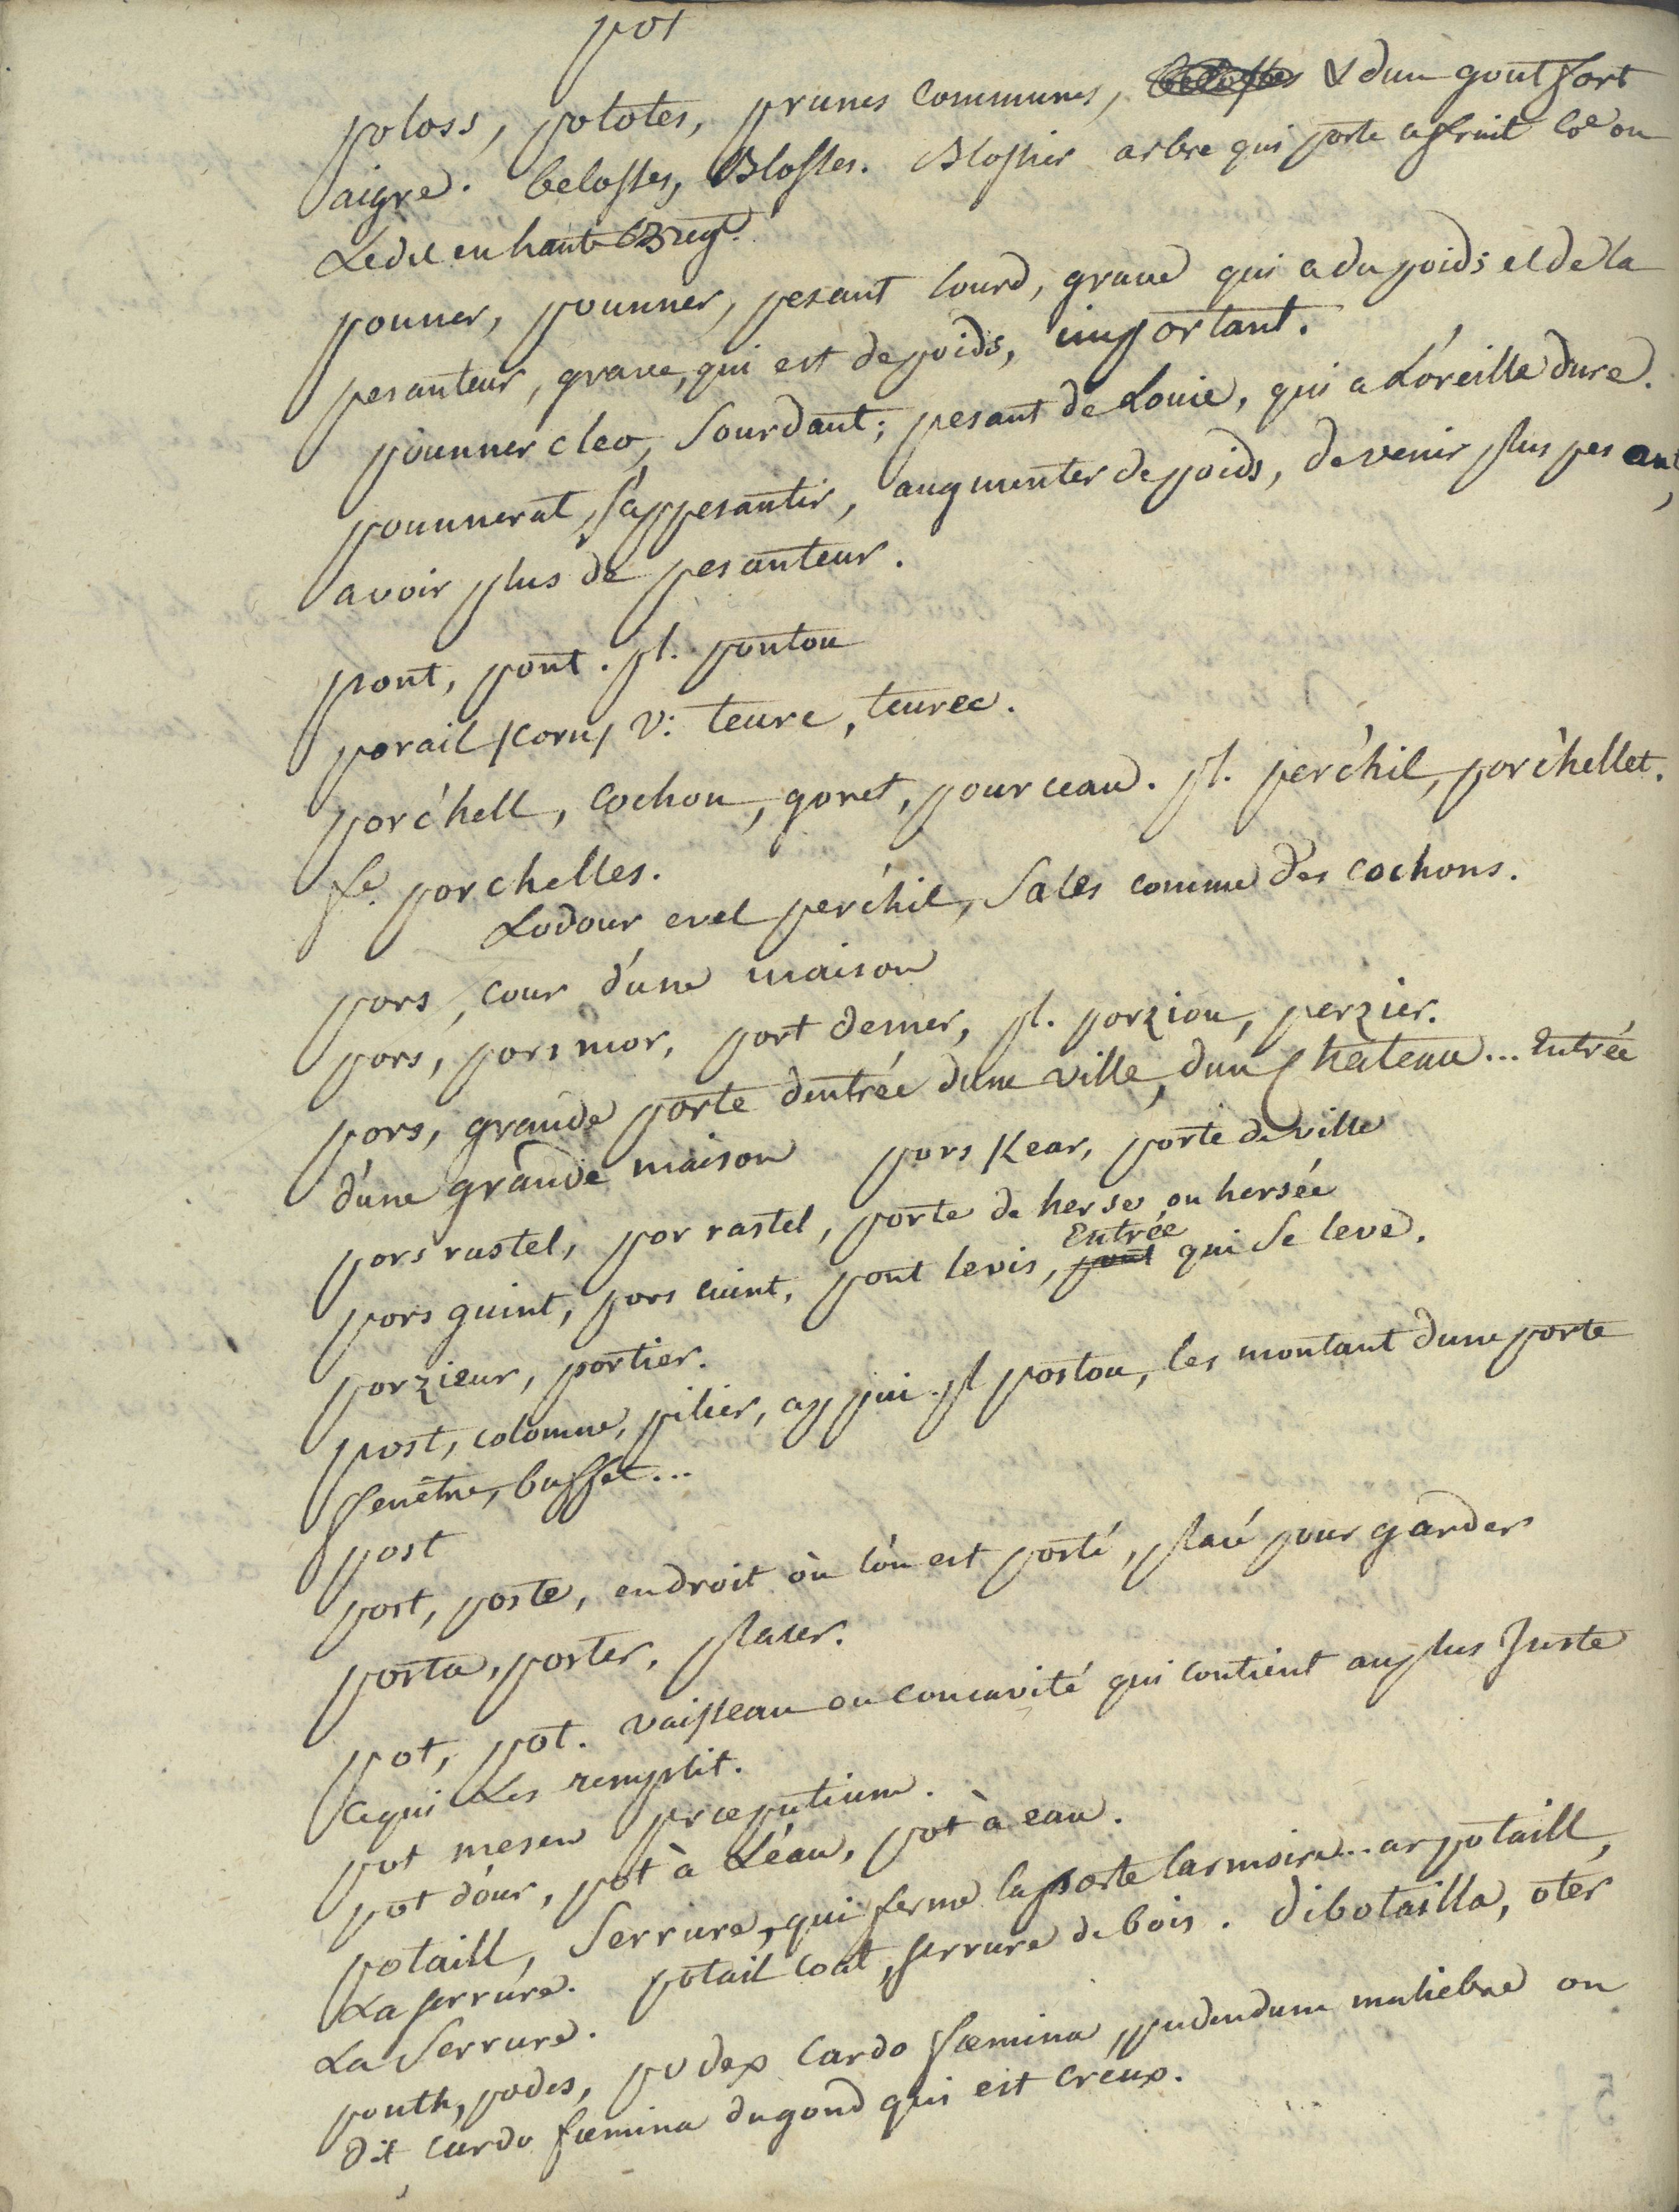 pot
poloss, polotes, prunes communes, & dun gout fort
aigre. belosses, Blosses. Blossier arbre qui porte ce fruit coe on
Le dit en haute Bregt.
pouner, pounner, pesant lourd, grave qui a du poids et de la
pesanteur, grave, qui est de poids, important.
pounner cleo, Sourdant; pesant de Louie, qui a L'oreille dure.
pounnerat, s'appesantir, augmenter de poids, devenir plus pesant,
avoir plus de pesanteur.
pont, pont. pl. pontou
porail /corn/ v: teure, teurec.
porc'hell, cochon, goret, pourceau. pl. perc'hil, porc'hellet.
fe. porchelles.
Loudour evel perc'hil, Sales comme des cochons.
pors, cour d'une maison
pors, pors mor, port demer, pl. porziou, perzier.
pors, grande porte dentrée dune ville, dun Chateau... Entrée
d'une grande maison pors Kear, porte de ville
pors rastel, por rastel, porte de herse ou hersée
pors guint, pors cuint, pont levis, pont Entrée qui Se leve.
porzieur, portier.
post, colomne, pilier, appui. pl postou, les montant dune porte
fenêtre, buffet...
post
post, poste, endroit où l'on est posté, placé pour garder
posta, poster, placer.
pot, pot. vaisseau ou concavité qui contient au plus Juste
ce qui Les remplit.
pot mesen præputium.
pot dour, pot à L'eau, pot à eau.
potaill, Serrure, qui ferme la porte larmoire... ar potaill,
La serrure. potail coat, serrure de bois. dibotailla, oter
La Serrure.
pouth, podes, podex Cardo fœmina, pudendum muliebre on
dit cardo fœmina du gond qui est creux.